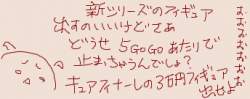 新シリーズのフィギュア
出すのいいけどさあ
どうせ 5GoGoあたりで
止まちゃうんでしょ?
キュアフィナーレの3万円フィギュア
出せよ
おおおおおおお